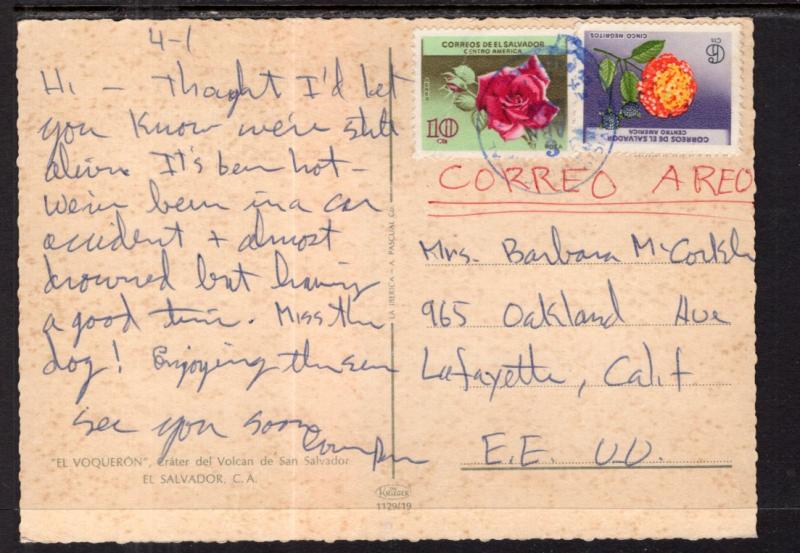 4-1
Hi - Thought I'd let
you know we're still
alive. It's been hot -
we've been in a car
accident & almost
drowned but having
a good time. Miss the
dog! Enjoying the sun
See you soon
"EL VOQUERÓN", Cráter del Volcan de San Salvador
EL SALVADOR, C. A.
LA IBERICA - A. PASCUAL
KRÜGER
1129/19
CORREOS DE EL SALVADOR
CENTRO AMERICA
10
Cts
ROSA
6
Cts
CINCO NEGRITOS
CORREOS DE EL SALVADOR
CENTRO AMERICA
CORREO AREO
Mrs. Barbara McCorkle
965 Oakland Ave
Lafayette, Calif
E.E. U.U.